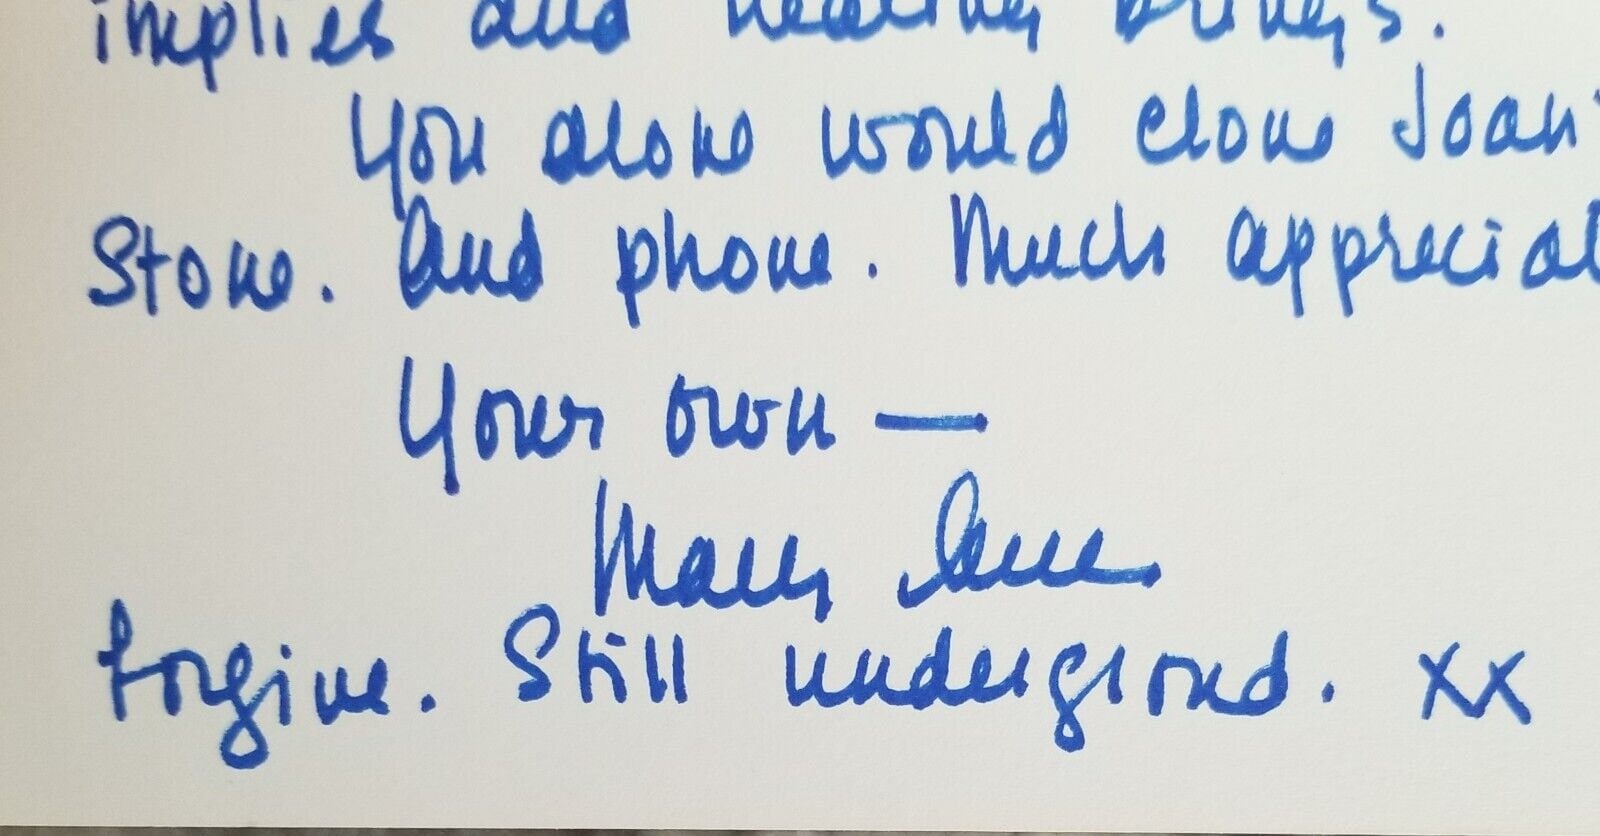 implies and healing brings.
You alone would clone Joan'
Stone. And phone. Much appreciat
Your own —
Mary Anne.
Forgive. Still underground. xx